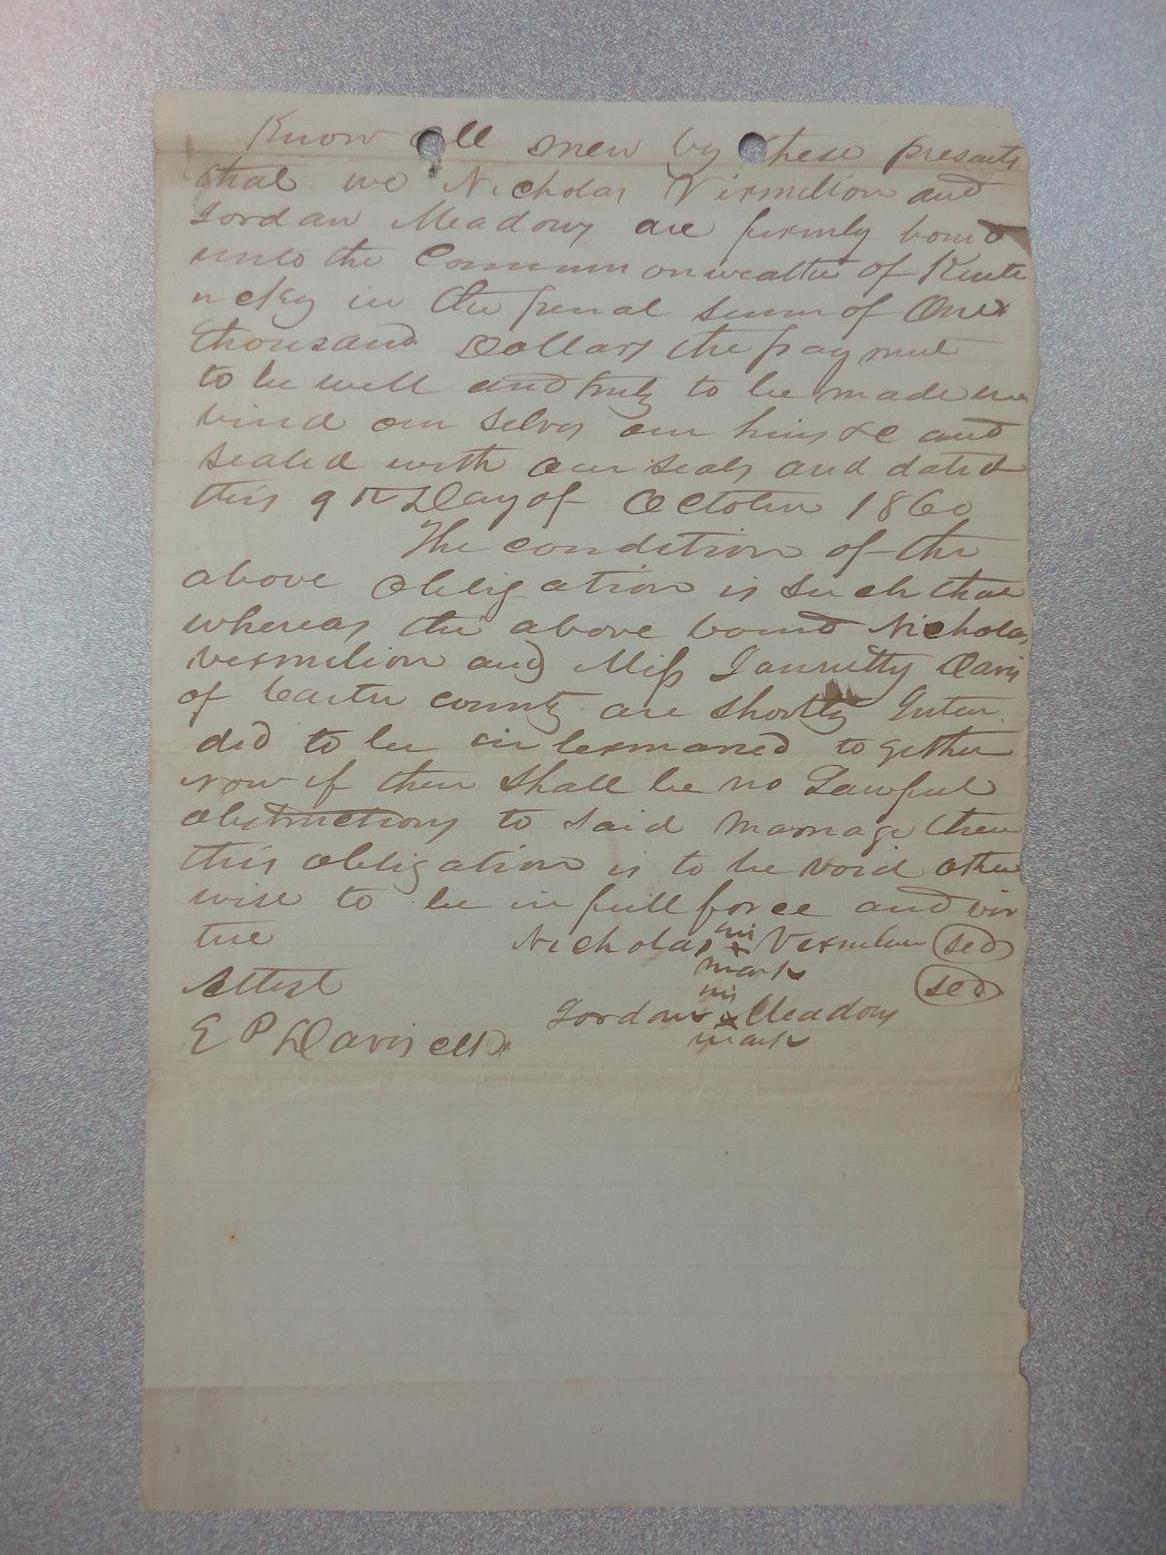 Know all men by these presents
that we Nicholas Vermilion and
Jordan Meadows are firmly bound
unto the Commonwealth of Kentu
ucky in the penal sum of One
thousand Dollars the payment
to be well and truly to be made we
bind our selves our heirs &c and
sealed with our seals and dated
this 9th Day of October 1860
The condition of the
above obligation is such that
whereas the above bound Nicholas
Vermilion and Miss Davis
of Carter county are shortly Inten
ded to be in termaried together
now if there shall be no Lawful
obstructions to said marriage then
this obligation is to be void other
wise to be in full force and vir
tue
Nicholas his x mark Vermilion
Attest
Jordan his x mark Meadows
E P Davis clk